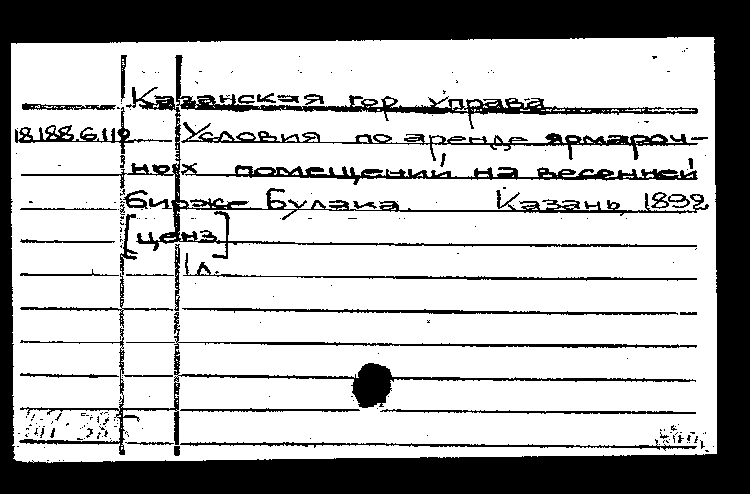 Казанская гор. управа.
18.188.6.119. Условия по аренде ярмароч-
ных помещений на весенней
бирже Булака. Казань, 1892
[ценз.]
1 л.